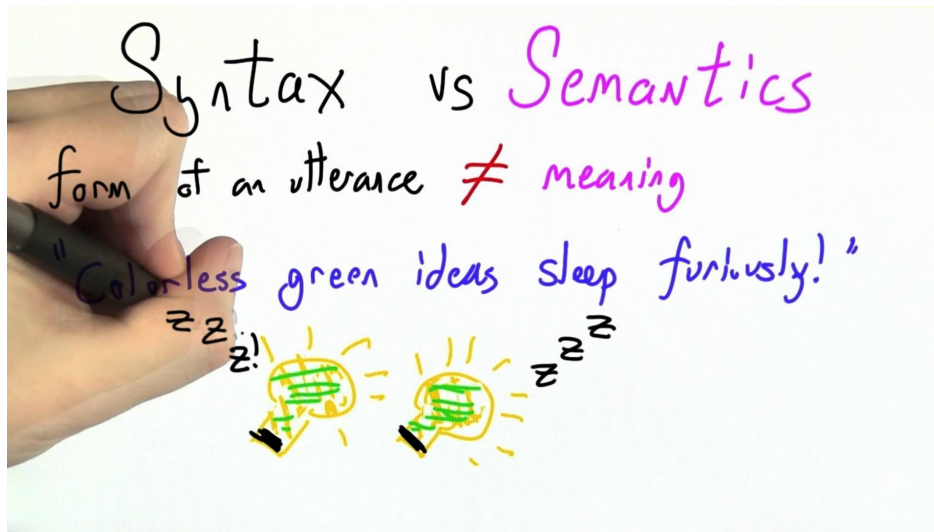 Syntax vs Semantics
form of an utterance ≠ meaning
"Colorless green ideas sleep furiously!"
z z z! z z z